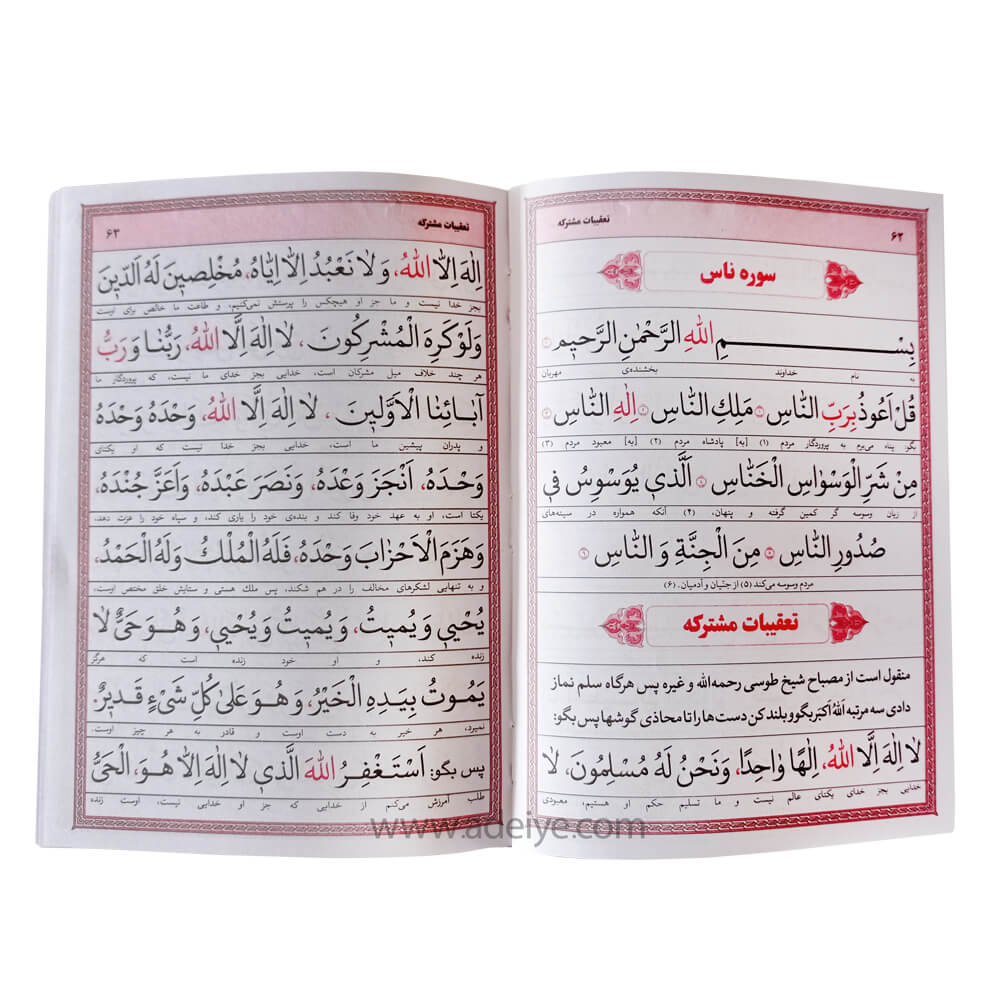 تعقیبات مشترکه
۶۲
سوره ناس
بِسْمِ اللهِ الرَّحْمٰنِ الرَّحیٖمِ
به نام خداوند بخشنده‌ی مهربان
قُلْ اَعُوذُ بِرَبِّ النّاسِ ۱ مَلِكِ النّاسِ ۲ اِلٰهِ النّاسِ ۳
بگو: پناه می‌برم به پروردگار مردم (۱) [به] پادشاه مردم (۲) [به] معبود مردم (۳)
مِنْ شَرِّ الْوَسْوٰاسِ الْخَنّٰاسِ ۴ اَلَّذٖی یُوَسْوِسُ فٖی
از زیان وسوسه گر کمین گرفته و پنهان، (۴) آنکه همواره در سینه‌های
صُدُورِ النّٰاسِ ۵ مِنَ الْجِنَّةِ وَ النّٰاسِ ۶
مردم وسوسه می‌کند (۵) از جنّیان و آدمیان. (۶)
تعقیبات مشترکه
منقول است از مصباح شیخ طوسی رحمه‌الله و غیره پس هرگاه سلم نماز
دادی سه مرتبه اَللهُ اَکبَر بگو و بلند کن دست‌ها را تا محاذی گوشها پس بگو:
لٰا اِلٰهَ اِلَّا اللهُ، اِلٰهًا وٰاحِدًا، وَنَحْنُ لَهُ مُسْلِمُونَ، لٰا
خدایی بجز خدای یکتای عالم نیست و ما تسلیم حکم او هستیم؛ معبودی
تعقیبات مشترکه
۶۳
اِلٰهَ اِلَّا اللهُ، وَ لٰا نَعْبُدُ اِلّٰا اِیّٰاهُ، مُخْلِصٖینَ لَهُ الدّٖینَ
بجز خدا نیست و ما جز او هیچکس را پرستش نمی‌کنیم، و طاعت ما خالص برای اوست
وَلَوْ کَرِهَ الْمُشْرِکُونَ، لٰا اِلٰهَ اِلَّا اللهُ، رَبُّنٰا وَ رَبُّ
هر چند خلاف میل مشرکان است، خدایی بجز خدای ما نیست، که پروردگار ما
آبٰائِنَا الْاَوَّلٖینَ، لٰا اِلٰهَ اِلَّا اللهُ، وَحْدَهُ وَحْدَهُ
و پدران پیشین ما است، خدایی بجز خدا نیست که او یکتای
وَحْدَهُ، اَنْجَزَ وَعْدَهُ، وَنَصَرَ عَبْدَهُ، وَاَعَزَّ جُنْدَهُ،
یکتا است، او به عهد خود وفا کند و بنده‌ی خود را یاری کند، و سپاه خود را عزت دهد،
وَ هَزَمَ الْاَحْزٰابَ وَحْدَهُ، فَلَهُ الْمُلْكُ وَلَهُ الْحَمْدُ،
و به تنهایی لشکرهای مخالف را در هم شکند، پس ملك هستی و ستایش خلق مختص اوست،
یُحْیٖی وَ یُمٖیتُ، وَ یُمٖیتُ وَ یُحْیٖی، وَ هُوَ حَیٌّ لٰا
زنده کند، و او خود زنده است که هرگز
یَمُوتُ بِیَدِهِ الْخَیْرُ، وَ هُوَ عَلیٰ کُلِّ شَیْءٍ قَدٖیرٌ.
نمیرد، هر خیر به دست اوست و قادر به هر چیز اوست.
پس بگو: اَسْتَغْفِرُ اللهَ الَّذٖی لٰا اِلٰهَ اِلّٰا هُوَ، الْحَیُّ
طلب آمرزش می‌کنم از خدایی که جز او خدایی نیست، اوست زنده
www.adeiye.com